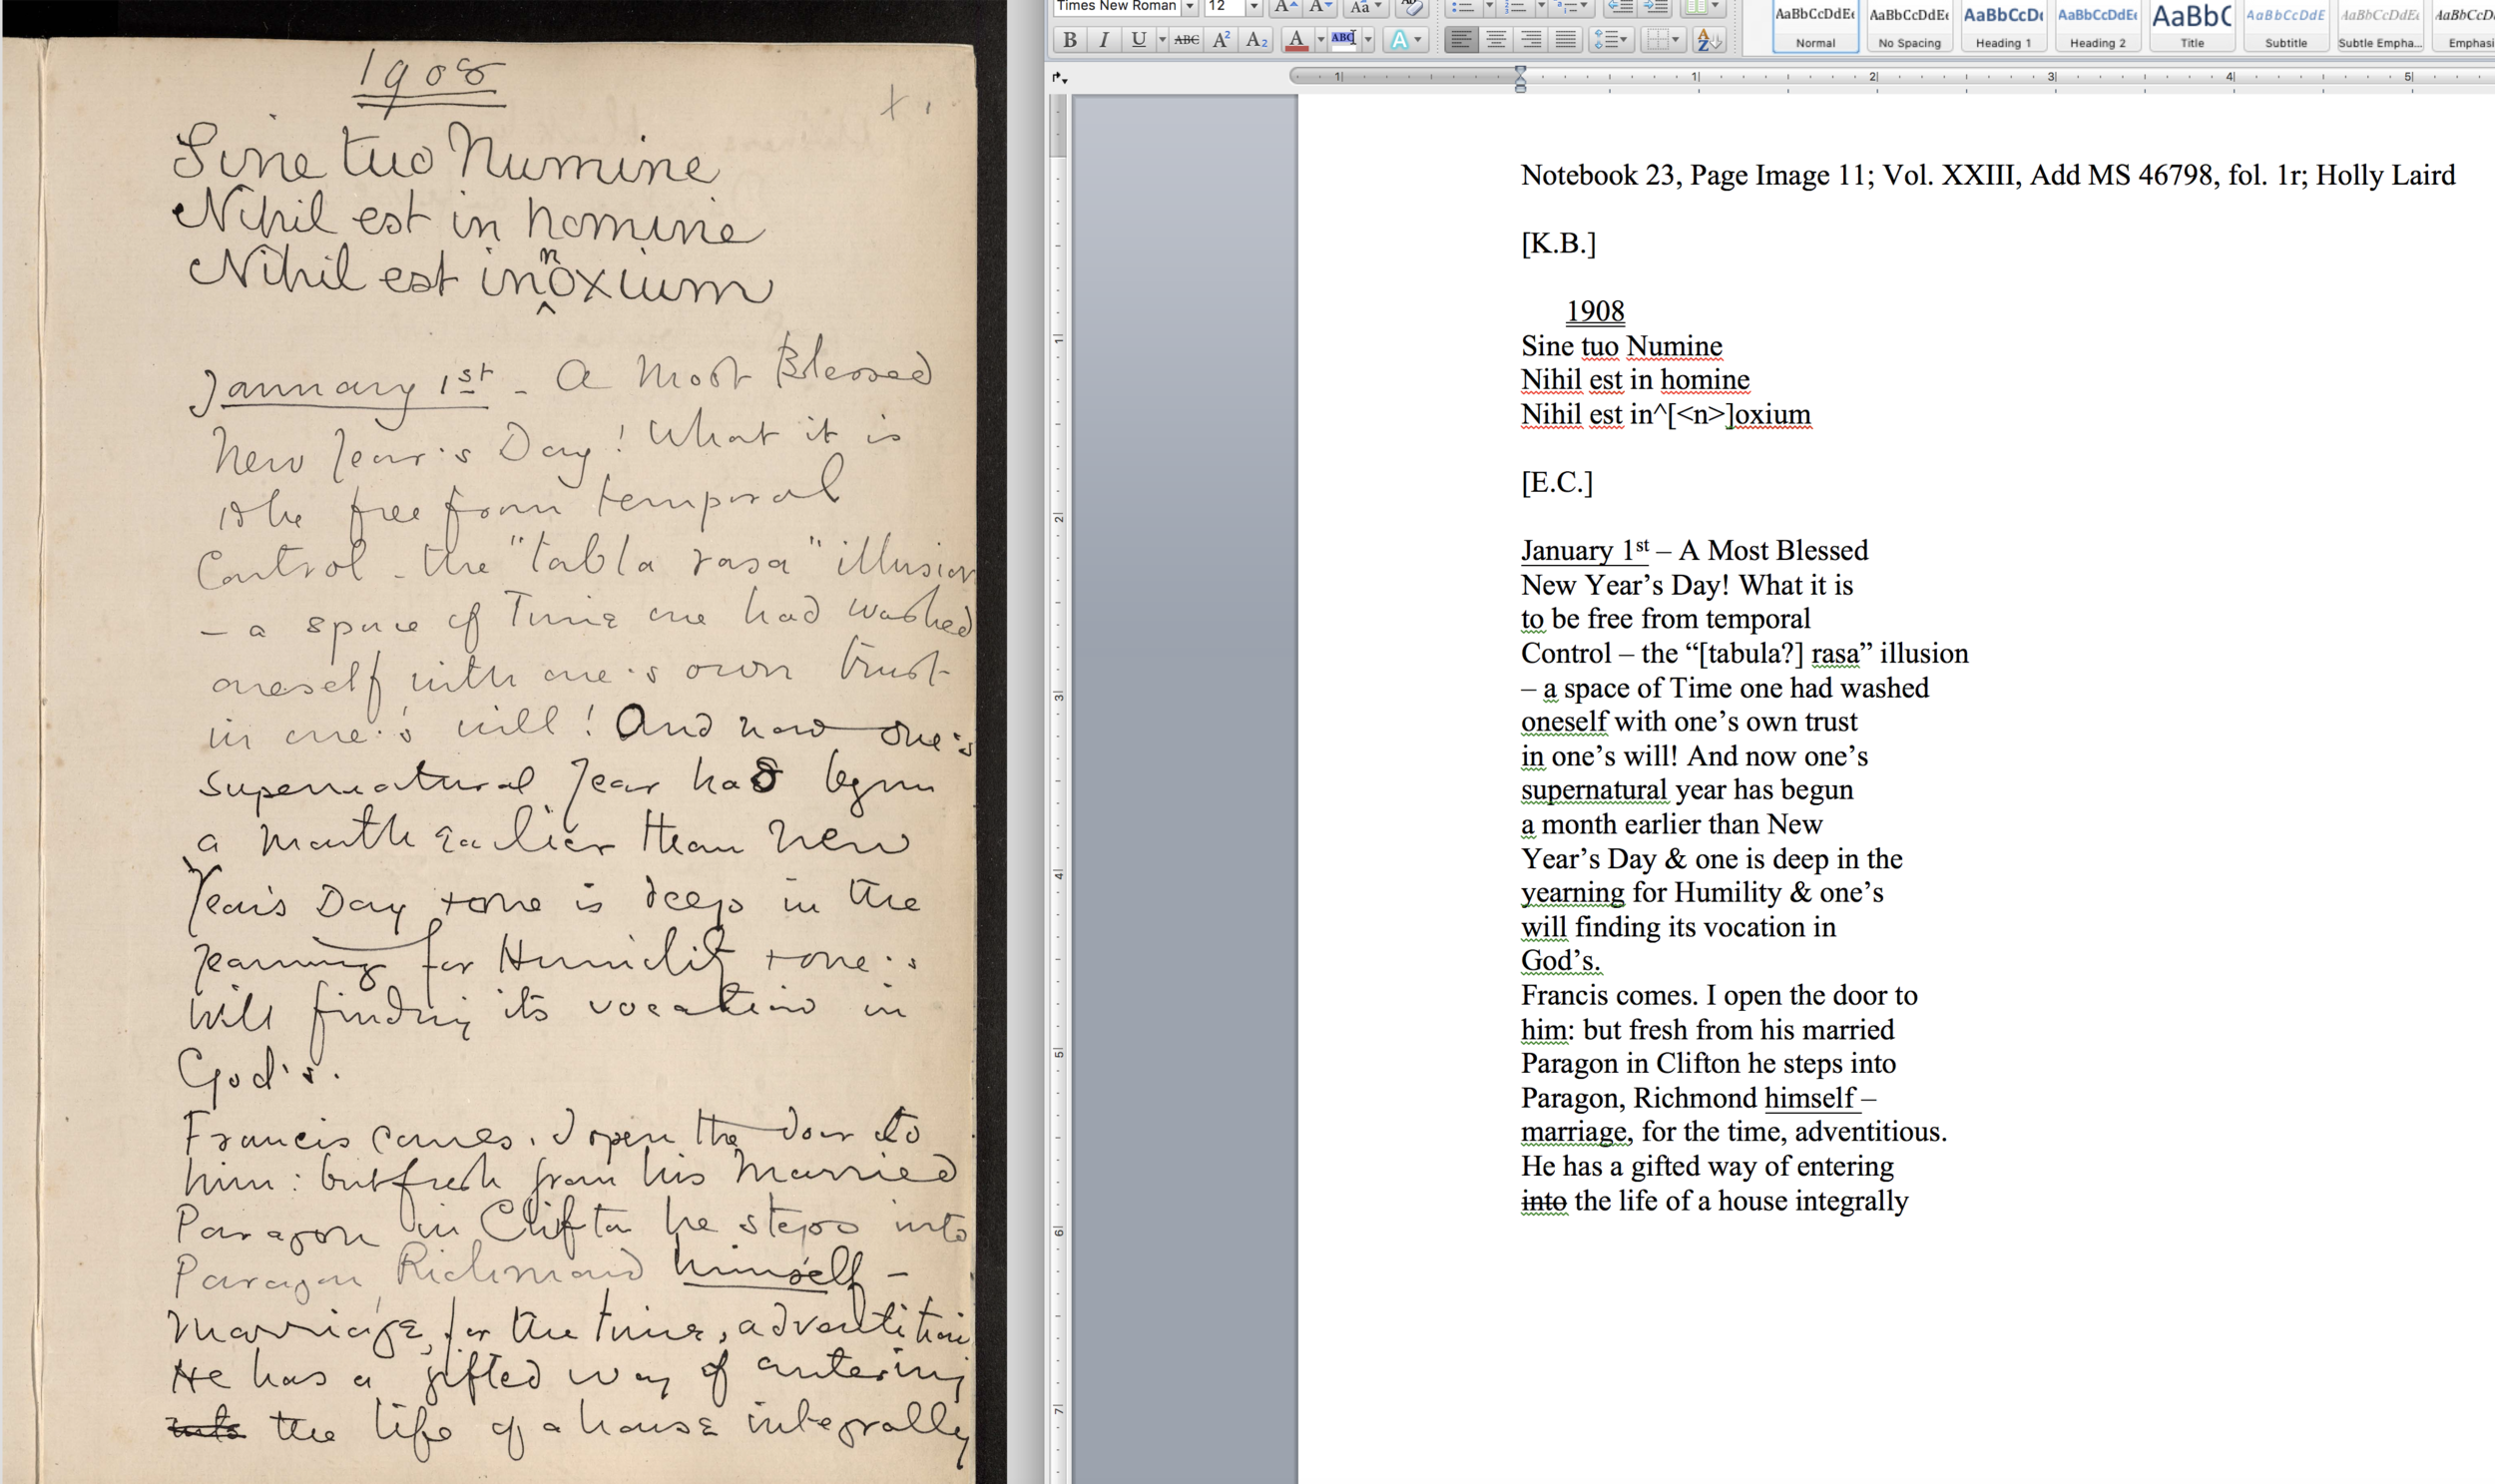 1908
x 1
Sine tuo Numine
Nihil est in homine
n
Nihil est inoxium
^
January 1st - A Most Blessed
New Year's Day! What it is
to be free from temporal
Control - the "tabla rasa" illusion
- a space of Time one had washed
oneself with one's own trust
in one's will! And now one's
supernatural Year has begun
a Month Earlier than New
Year's Day + one is deep in the
yearning for Humility + one's
will finding its vocation in
God's.
Francis comes. I open the door to
him: but fresh from his Married
Paragon in Clifton he steps into
Paragon, Richmond himself -
Marriage, for the time, adventitious
He has a gifted way of entering
into the life of a house integrally
Times New Roman 12 Aa
B I U ABC A² A₂ A ABC A
AaBbCcDdEe AaBbCcDdEe AaBbCcDc AaBbCcDdEe AaBbC AaBbCcDdE AaBbCcDdEe AaBbCcD
Normal No Spacing Heading 1 Heading 2 Title Subtitle Subtle Empha... Emphasi
1 1 2 3 4 5
1
2
3
4
5
6
7
Notebook 23, Page Image 11; Vol. XXIII, Add MS 46798, fol. 1r; Holly Laird
[K.B.]
1908
Sine tuo Numine
Nihil est in homine
Nihil est in^[<n>]oxium
[E.C.]
January 1st – A Most Blessed
New Year’s Day! What it is
to be free from temporal
Control – the “[tabula?] rasa” illusion
– a space of Time one had washed
oneself with one’s own trust
in one’s will! And now one’s
supernatural year has begun
a month earlier than New
Year’s Day & one is deep in the
yearning for Humility & one’s
will finding its vocation in
God’s.
Francis comes. I open the door to
him: but fresh from his married
Paragon in Clifton he steps into
Paragon, Richmond himself –
marriage, for the time, adventitious.
He has a gifted way of entering
into the life of a house integrally